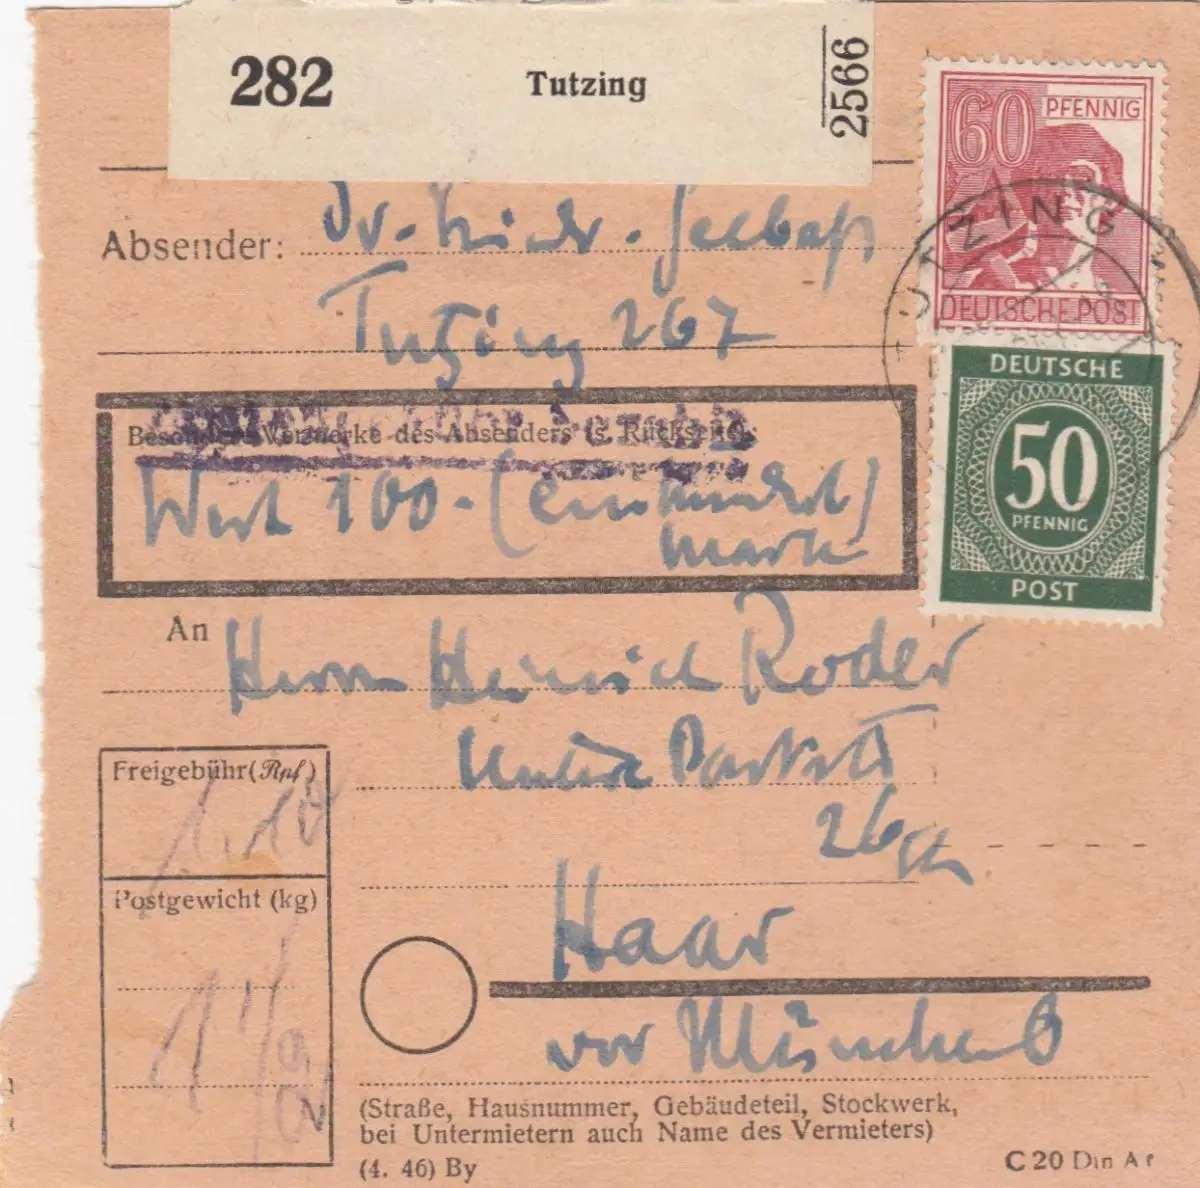 282 Tutzing 2566
60 PFENNIG
DEUTSCHE POST
TUTZING
DEUTSCHE
50
PFENNIG
POST
Absender: Dr.
Tutzing 267
Besondere Vermerke des Absenders (s. Rückseite):
Wert 100.- (Einhundert)
Mark
An Herrn Heinrich Roder
Untere Parkstr
26a
Haar
vor München 8
Freigebühr (Rpf)
1.10
Postgewicht (kg)
1
(Straße, Hausnummer, Gebäudeteil, Stockwerk,
bei Untermietern auch Name des Vermieters)
(4. 46) By
C 20 Din A